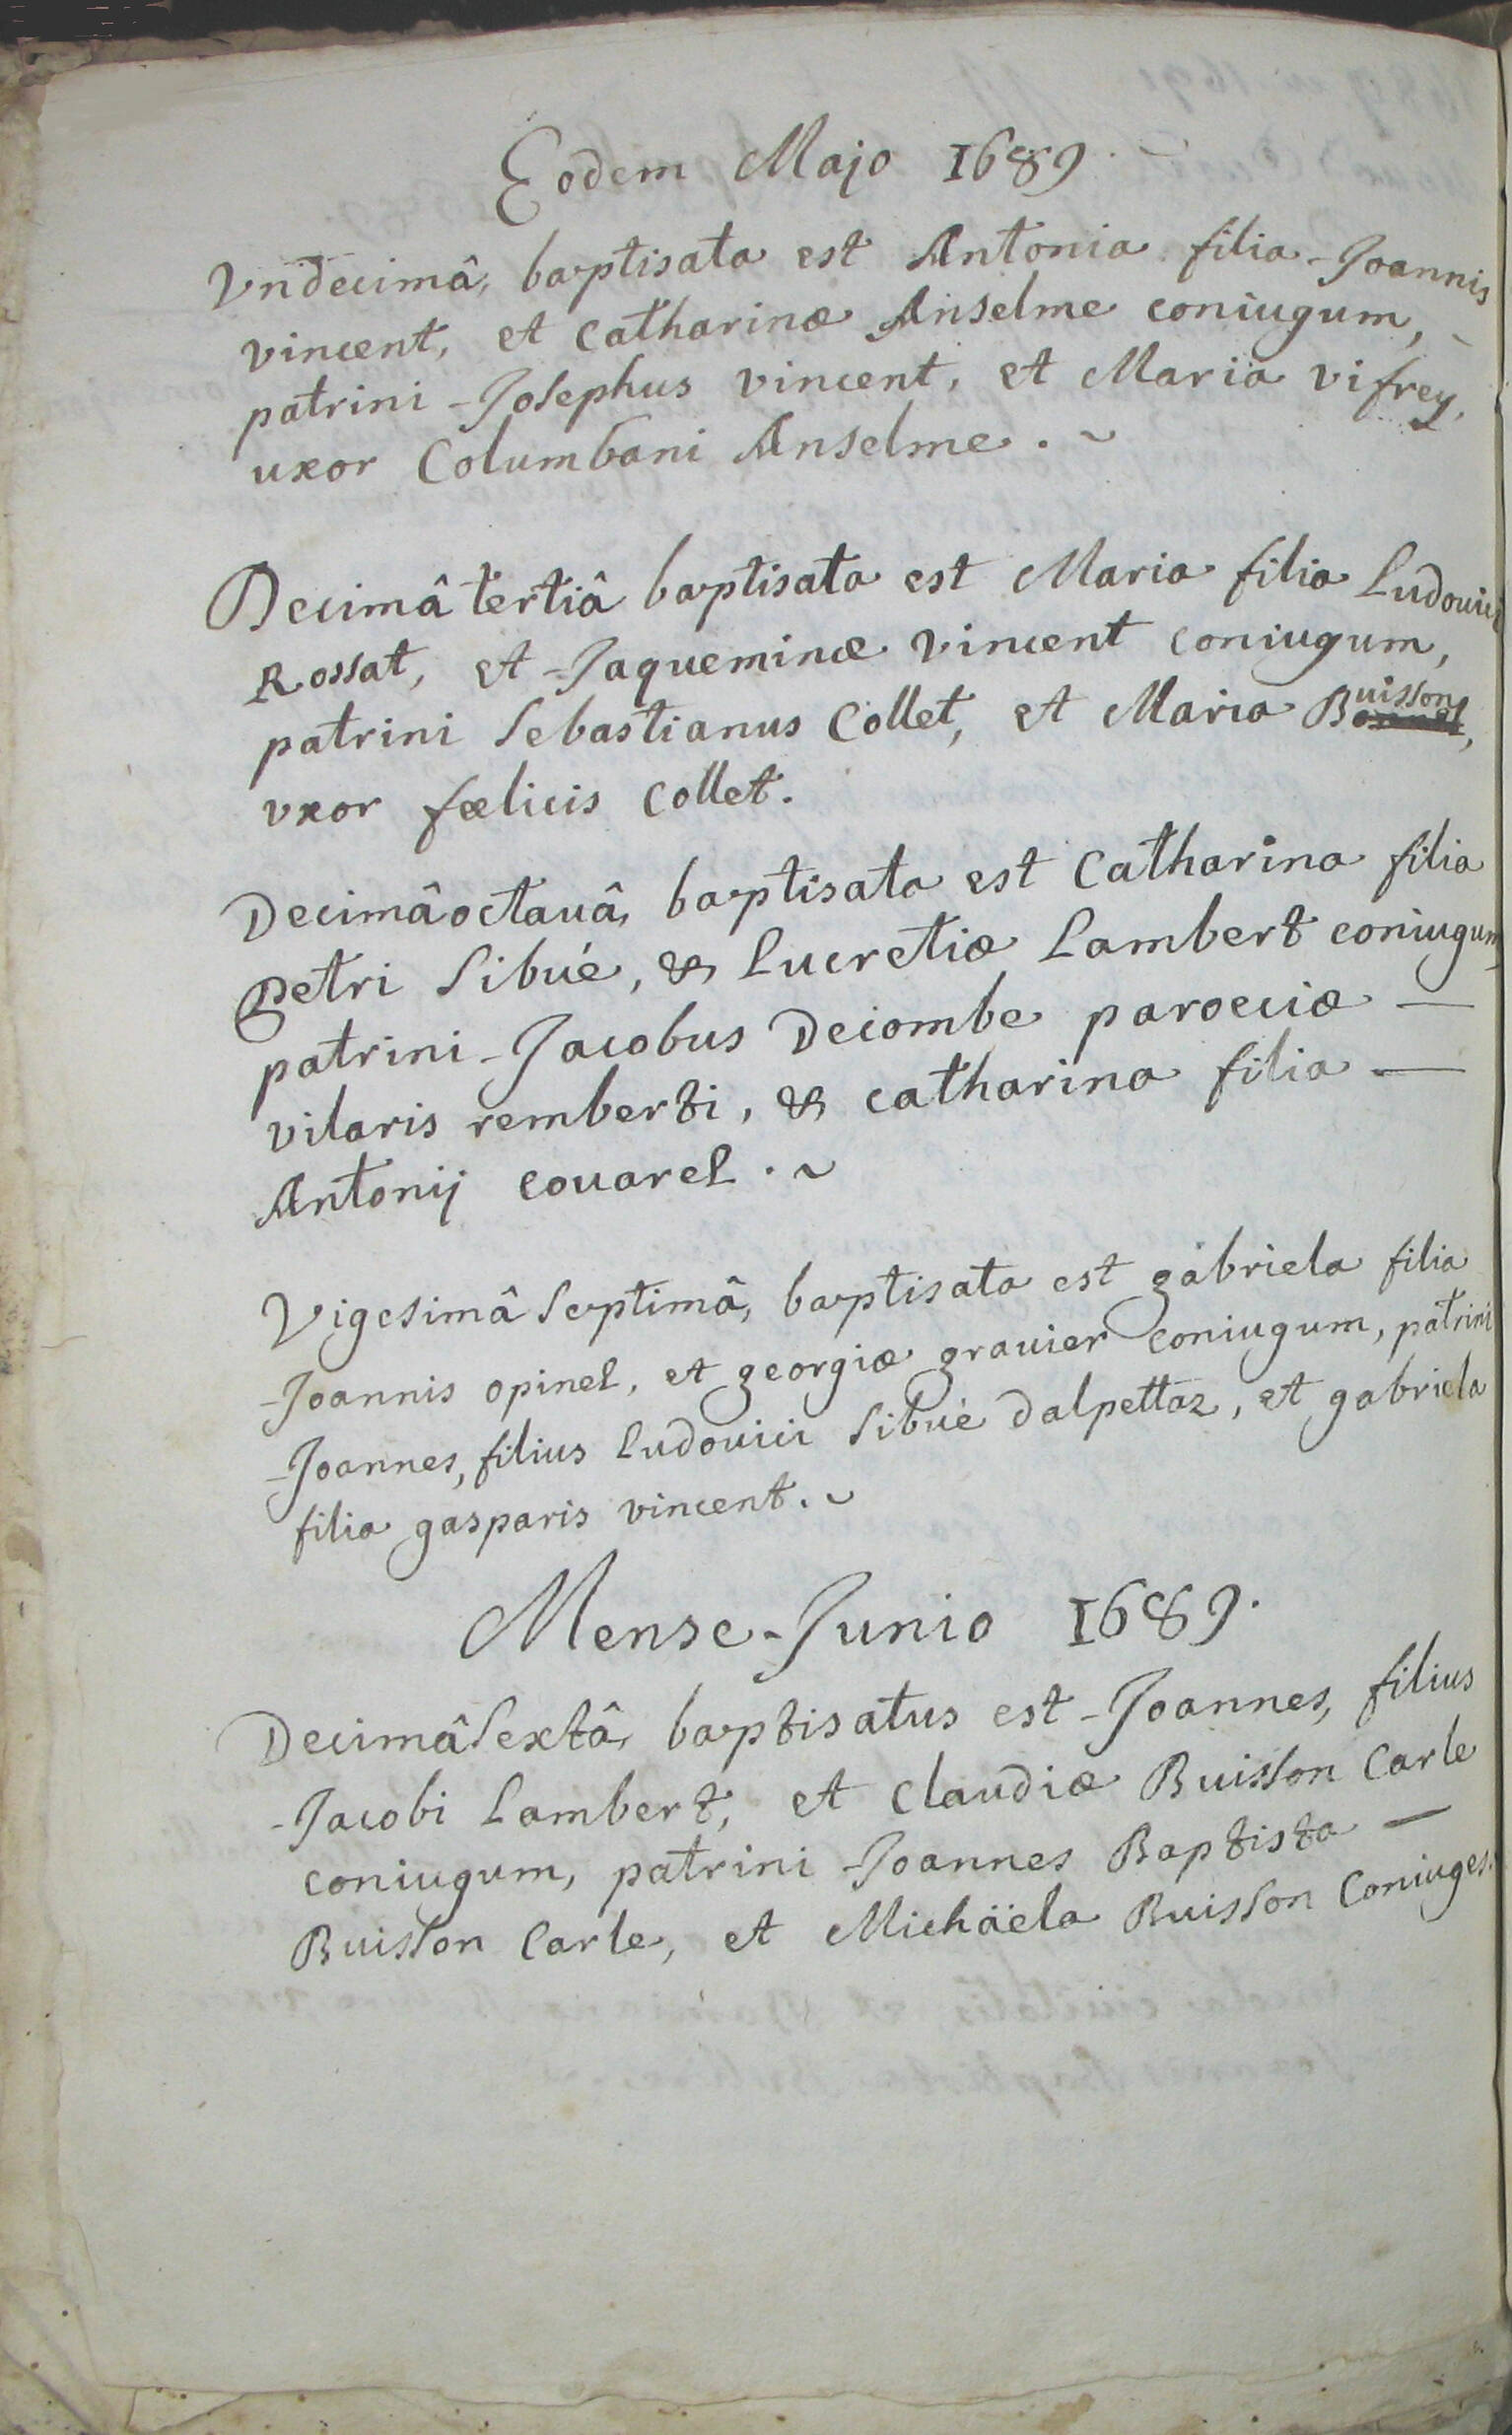 Eodem Majo 1689.
Vndecimâ, baptisata est Antonia filia Joannis
vincent, et Catharinæ Anselme coniugum,
patrini Josephus vincent, et Maria vifrey,
uxor Columbani Anselme.
Decimâ tertiâ baptisata est Maria filia Ludouici
Rossat, et Jaqueminæ vincent coniugum,
patrini Sebastianus Collet, et Maria Buisson,
vxor fœlicis Collet.
Decimâ octauâ, baptisata est Catharina filia
Petri Sibué, & Lucretiæ Lambert coniugum
patrini Jacobus Decombe parœciæ —
vilaris remberti, & catharina filia —
Antonij couarel.
Vigesimâ Septimâ, baptisata est gabriela filia
Joannis opinel, et georgiæ grauier coniugum, patrini
Joannes, filius Ludouici Sibué dalpettaz, et gabriela
filia gasparis vincent.
Mense Junio 1689.
Decimâ Sextâ, baptisatus est Joannes, filius
Jacobi Lambert, et Claudiæ Buisson Carle
coniugum, patrini Joannes Baptista —
Buisson Carle, et Michäela Buisson Coniuges.